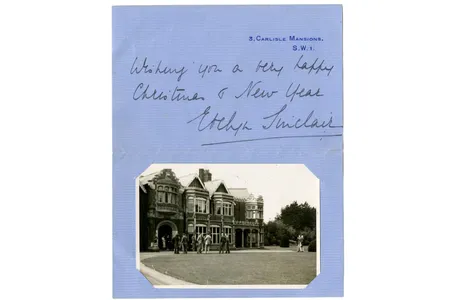 8, CARLISLE MANSIONS,
S.W.1.
Wishing you a very happy
Christmas & New Year
Evelyn Sinclair